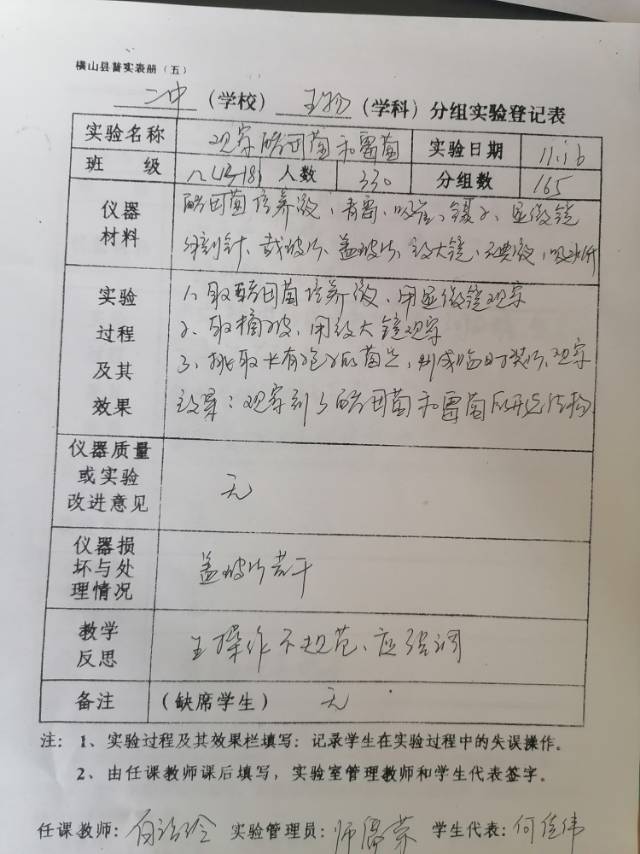 横山县普实表册（五）
二中（学校）生物（学科）分组实验登记表
实验名称 观察酵母菌和霉菌 实验日期 11.16
班级 人数 330 分组数 165
仪器材料 酵母菌培养液、青霉、吸管、镊子、显微镜
解剖针、载玻片、盖玻片、放大镜、碘液、吸水纸
实验过程及其效果 1、取酵母菌培养液，用显微镜观察
2、取橘皮，用放大镜观察
3、挑取长有孢子的菌丝，制成临时装片，观察
效果：观察到了酵母菌和霉菌的形态结构
仪器质量或实验改进意见 无
仪器损坏与处理情况 盖玻片若干
教学反思 生操作不规范、应强调
备注（缺席学生） 无
注：1、实验过程及其效果栏填写：记录学生在实验过程中的失误操作。
2、由任课教师课后填写，实验室管理教师和学生代表签字。
任课教师： 实验管理员： 学生代表：何佳伟